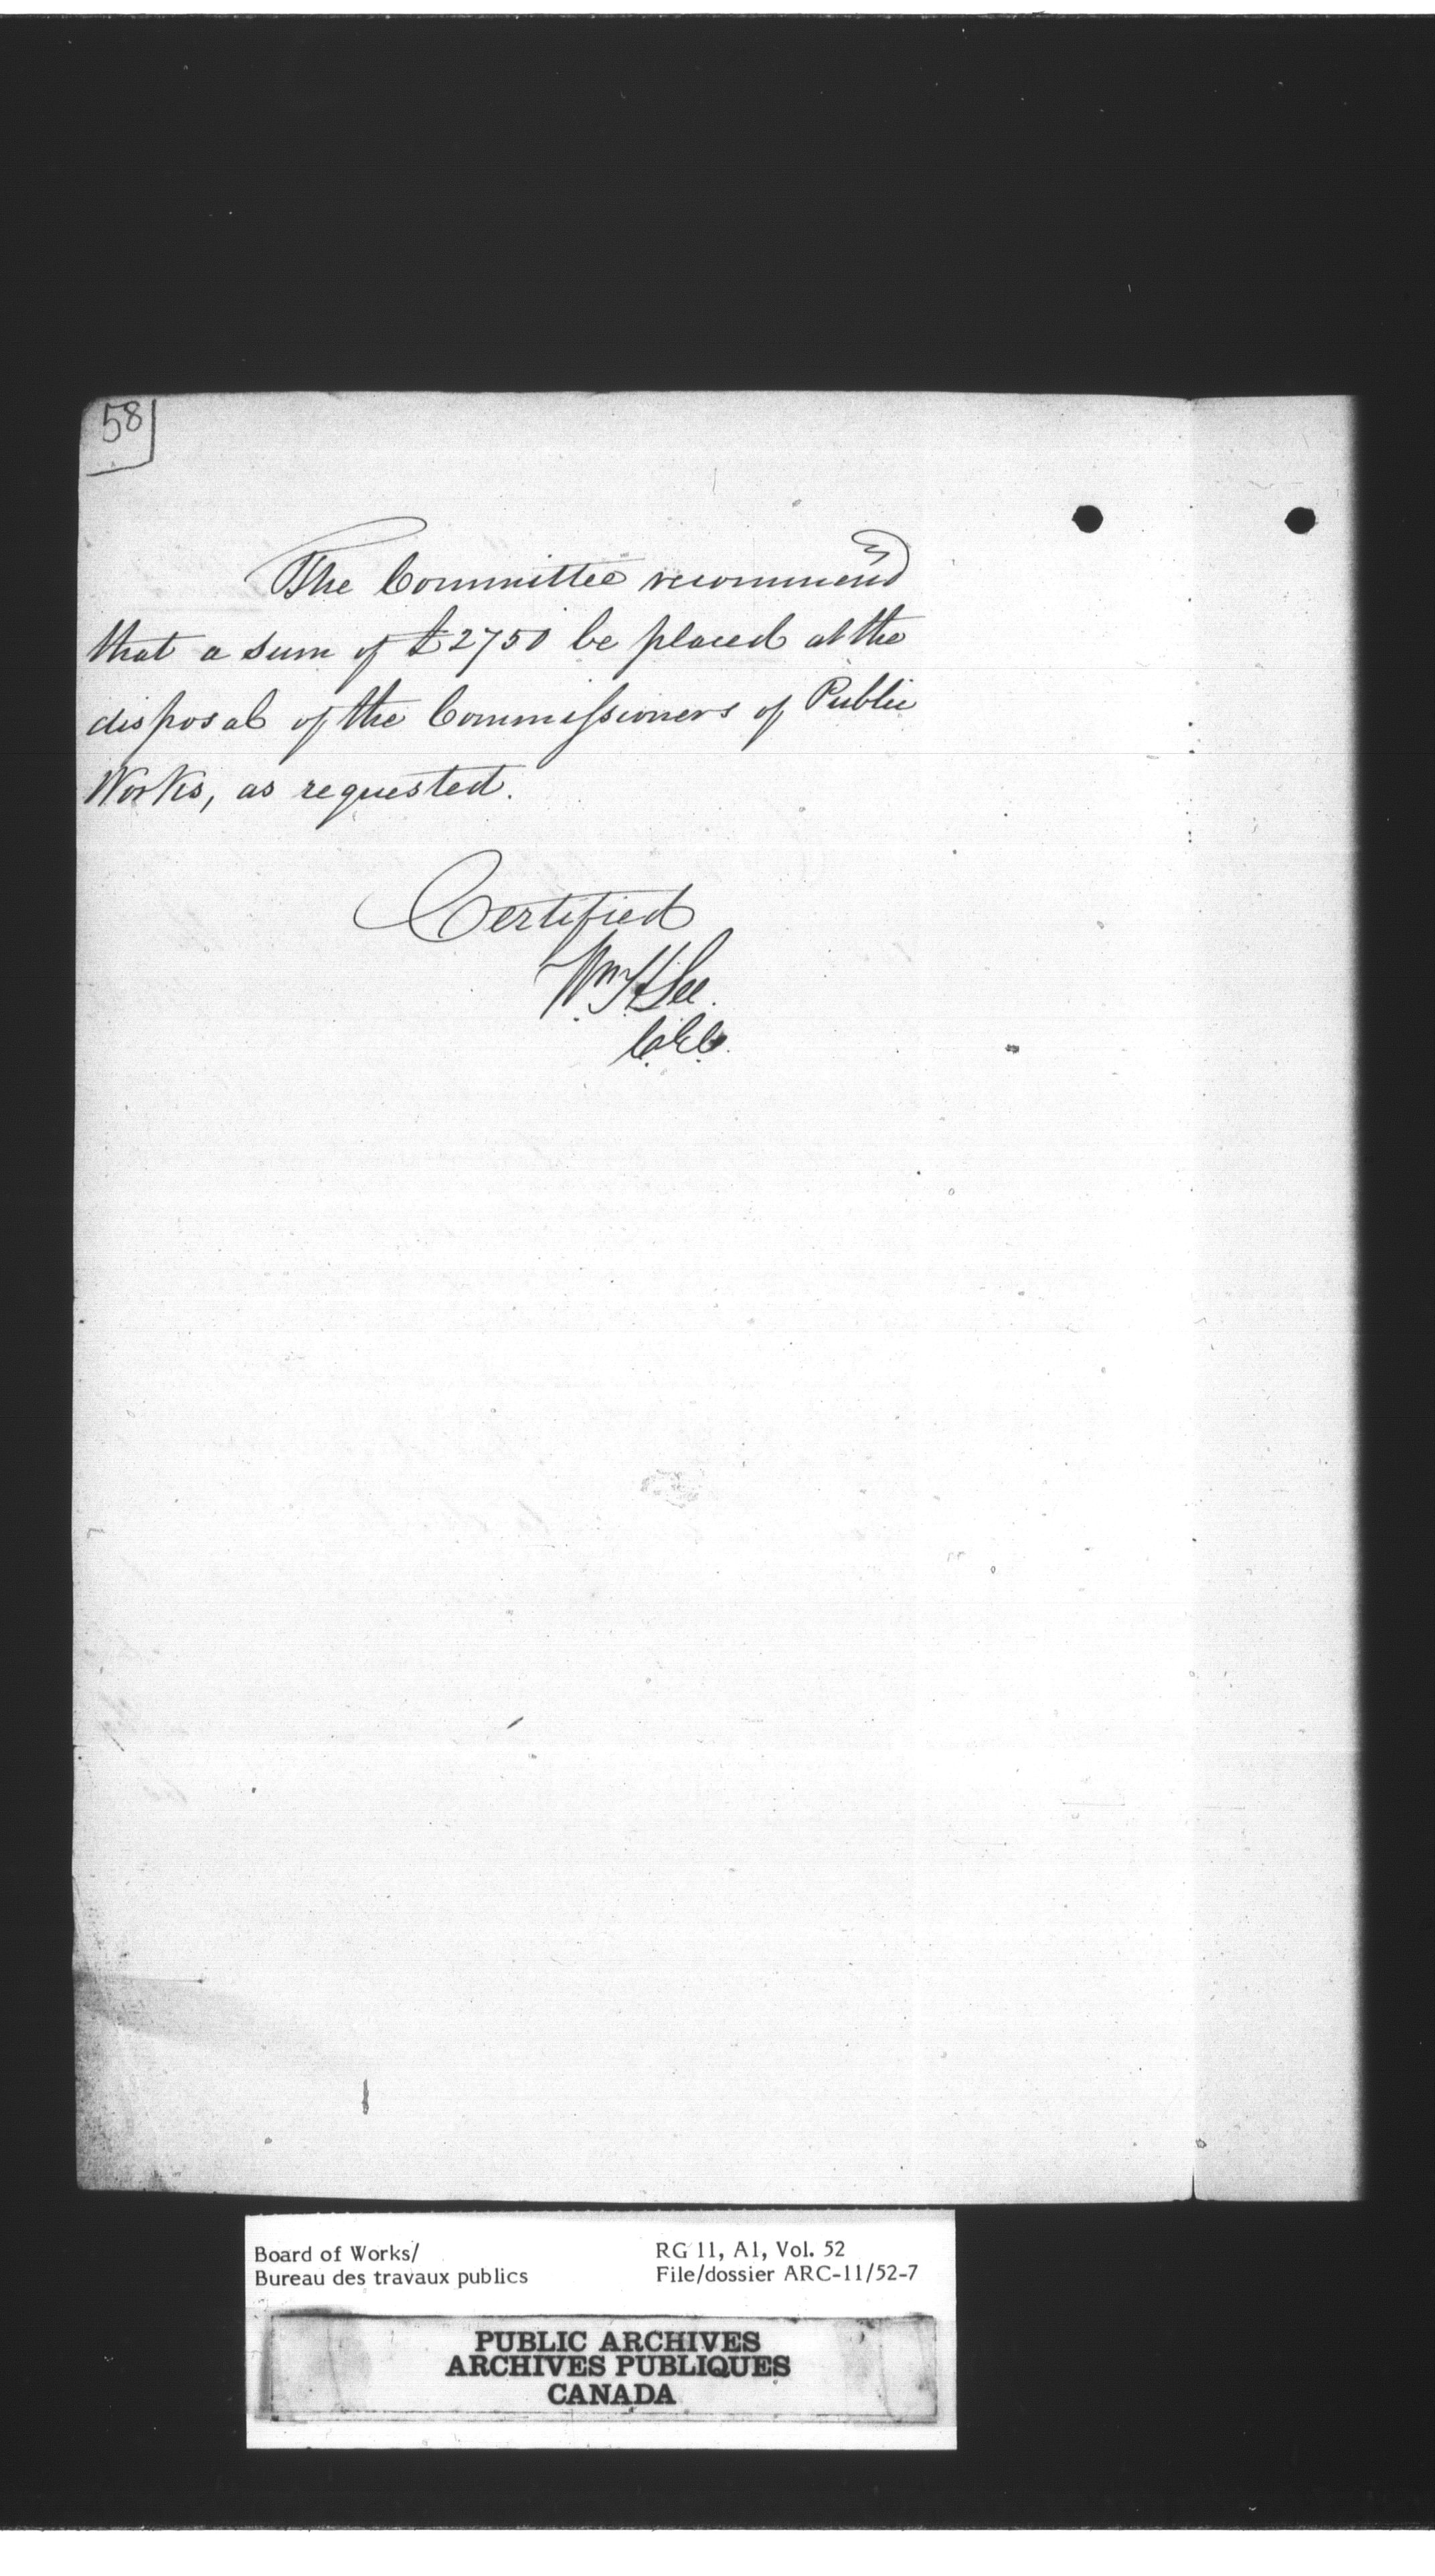 58
The Committee recommend
that a sum of £2750 be placed at the
disposal of the Commissioners of Public
Works, as requested.
Certified
Wm H Lee.
C.E.C.
Board of Works/
Bureau des travaux publics
RG 11, A1, Vol. 52
File/dossier ARC-11/52-7
PUBLIC ARCHIVES
ARCHIVES PUBLIQUES
CANADA